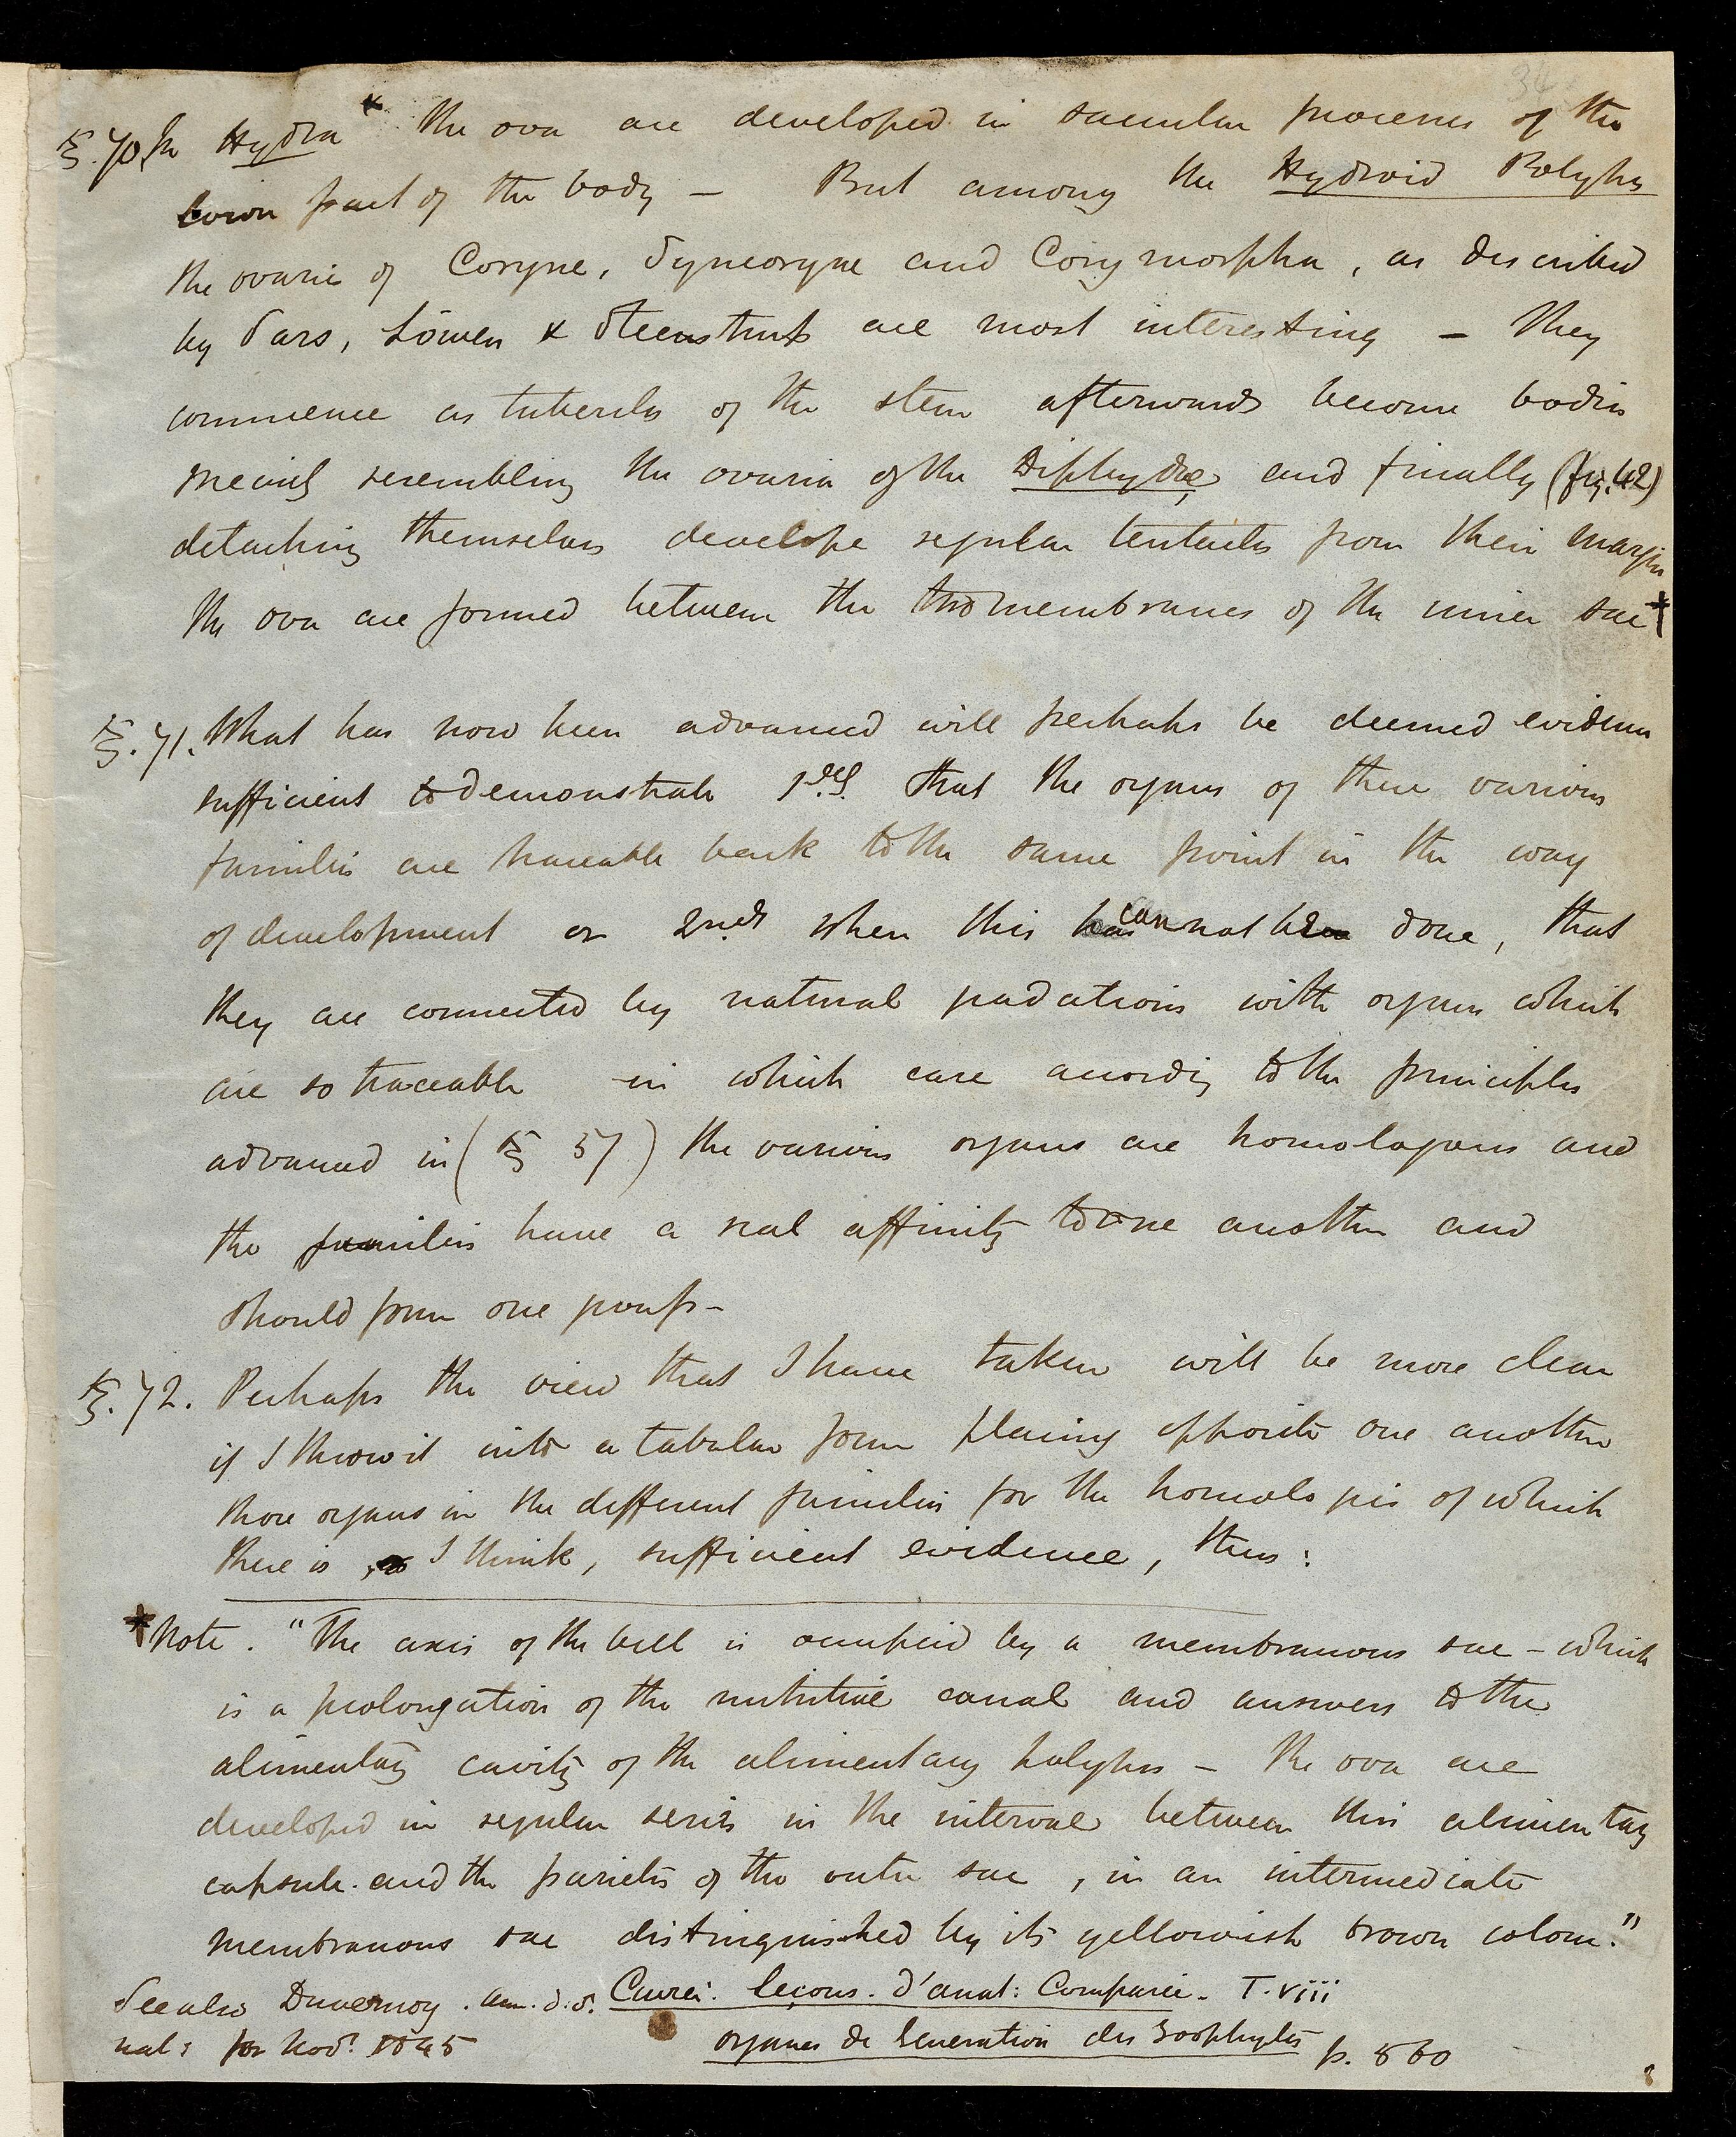 34
§. 70. In Hydra * the ova are developed in saccular processes of the
lower part of the body — But among the Hydroid Polyps
the ovaria of Coryne, Syncoryne and Corymorpha, as described
by Sars, Löwen & Steenstrup are most interesting — They
commence as tubercles of the stem afterwards become bodies
precisely resembling the ovaria of the Diphydæ, and finally (fig. 42)
detaching themselves develope regular tentacles from their margin
The ova are formed between the two membranes of the inner sac †
§. 71. What has now been advanced will perhaps be deemed evidence
sufficient to demonstrate 1stly. that the organs of these various
families are traceable back to the same point in the way
of development or 2ndly when this has can not been done, that
they are connected by natural gradations with organs which
are so traceable in which case according to the principles
advanced in (§ 57) the various organs are homologous and
the families have a real affinity to one another and
should form one group —
§. 72. Perhaps the view that I have taken will be more clear
if I throw it into a tabular form placing opposite one another
those organs in the different families for the homologies of which
there is, I think, sufficient evidence, thus:
† Note. "The axis of the bell is occupied by a membranous sac — which
is a prolongation of the nutritive canal and answers to the
alimentary cavity of the alimentary polyps — The ova are
developed in regular series in the interval between this alimentary
capsule. and the parietes of the outer sac, in an intermediate
membranous sac distinguished by its yellowish brown colour."
See also Duvernoy. Ann. d. S. Cuvier. Leçons. d'anat: Comparée. T. viii
nat: for Nov: 1845 organes de Generation des Zoophytes p. 860